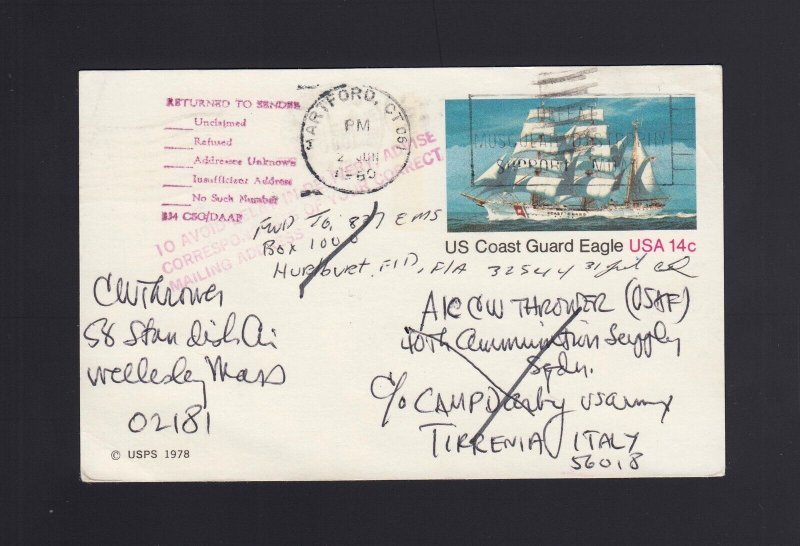 RETURNED TO SENDER
Unclaimed
Refused
Addressee Unknown
Insufficient Address
No Such Number
834 CSO/DAAP
HARTFORD, CT 061
PM
2 JUN
1980
MUSCULAR DYSTROPHY
SUPPORT
TO AVOID ADVISE
CORRESPONDENTS OF YOUR CORRECT
MAILING ADDRESS
FWD TO: 837 EMS
Box 1000
Hurlburt, FLD, FlA 32544
US Coast Guard Eagle USA 14c
CW Thrower
58 Standish
Wellesley Mass
02181
A1C CW THROWER (USAF)
40th Communication Supply
Sqdn.
c/o CAMP Darby US Army
TIRRENIA ITALY
56018
© USPS 1978